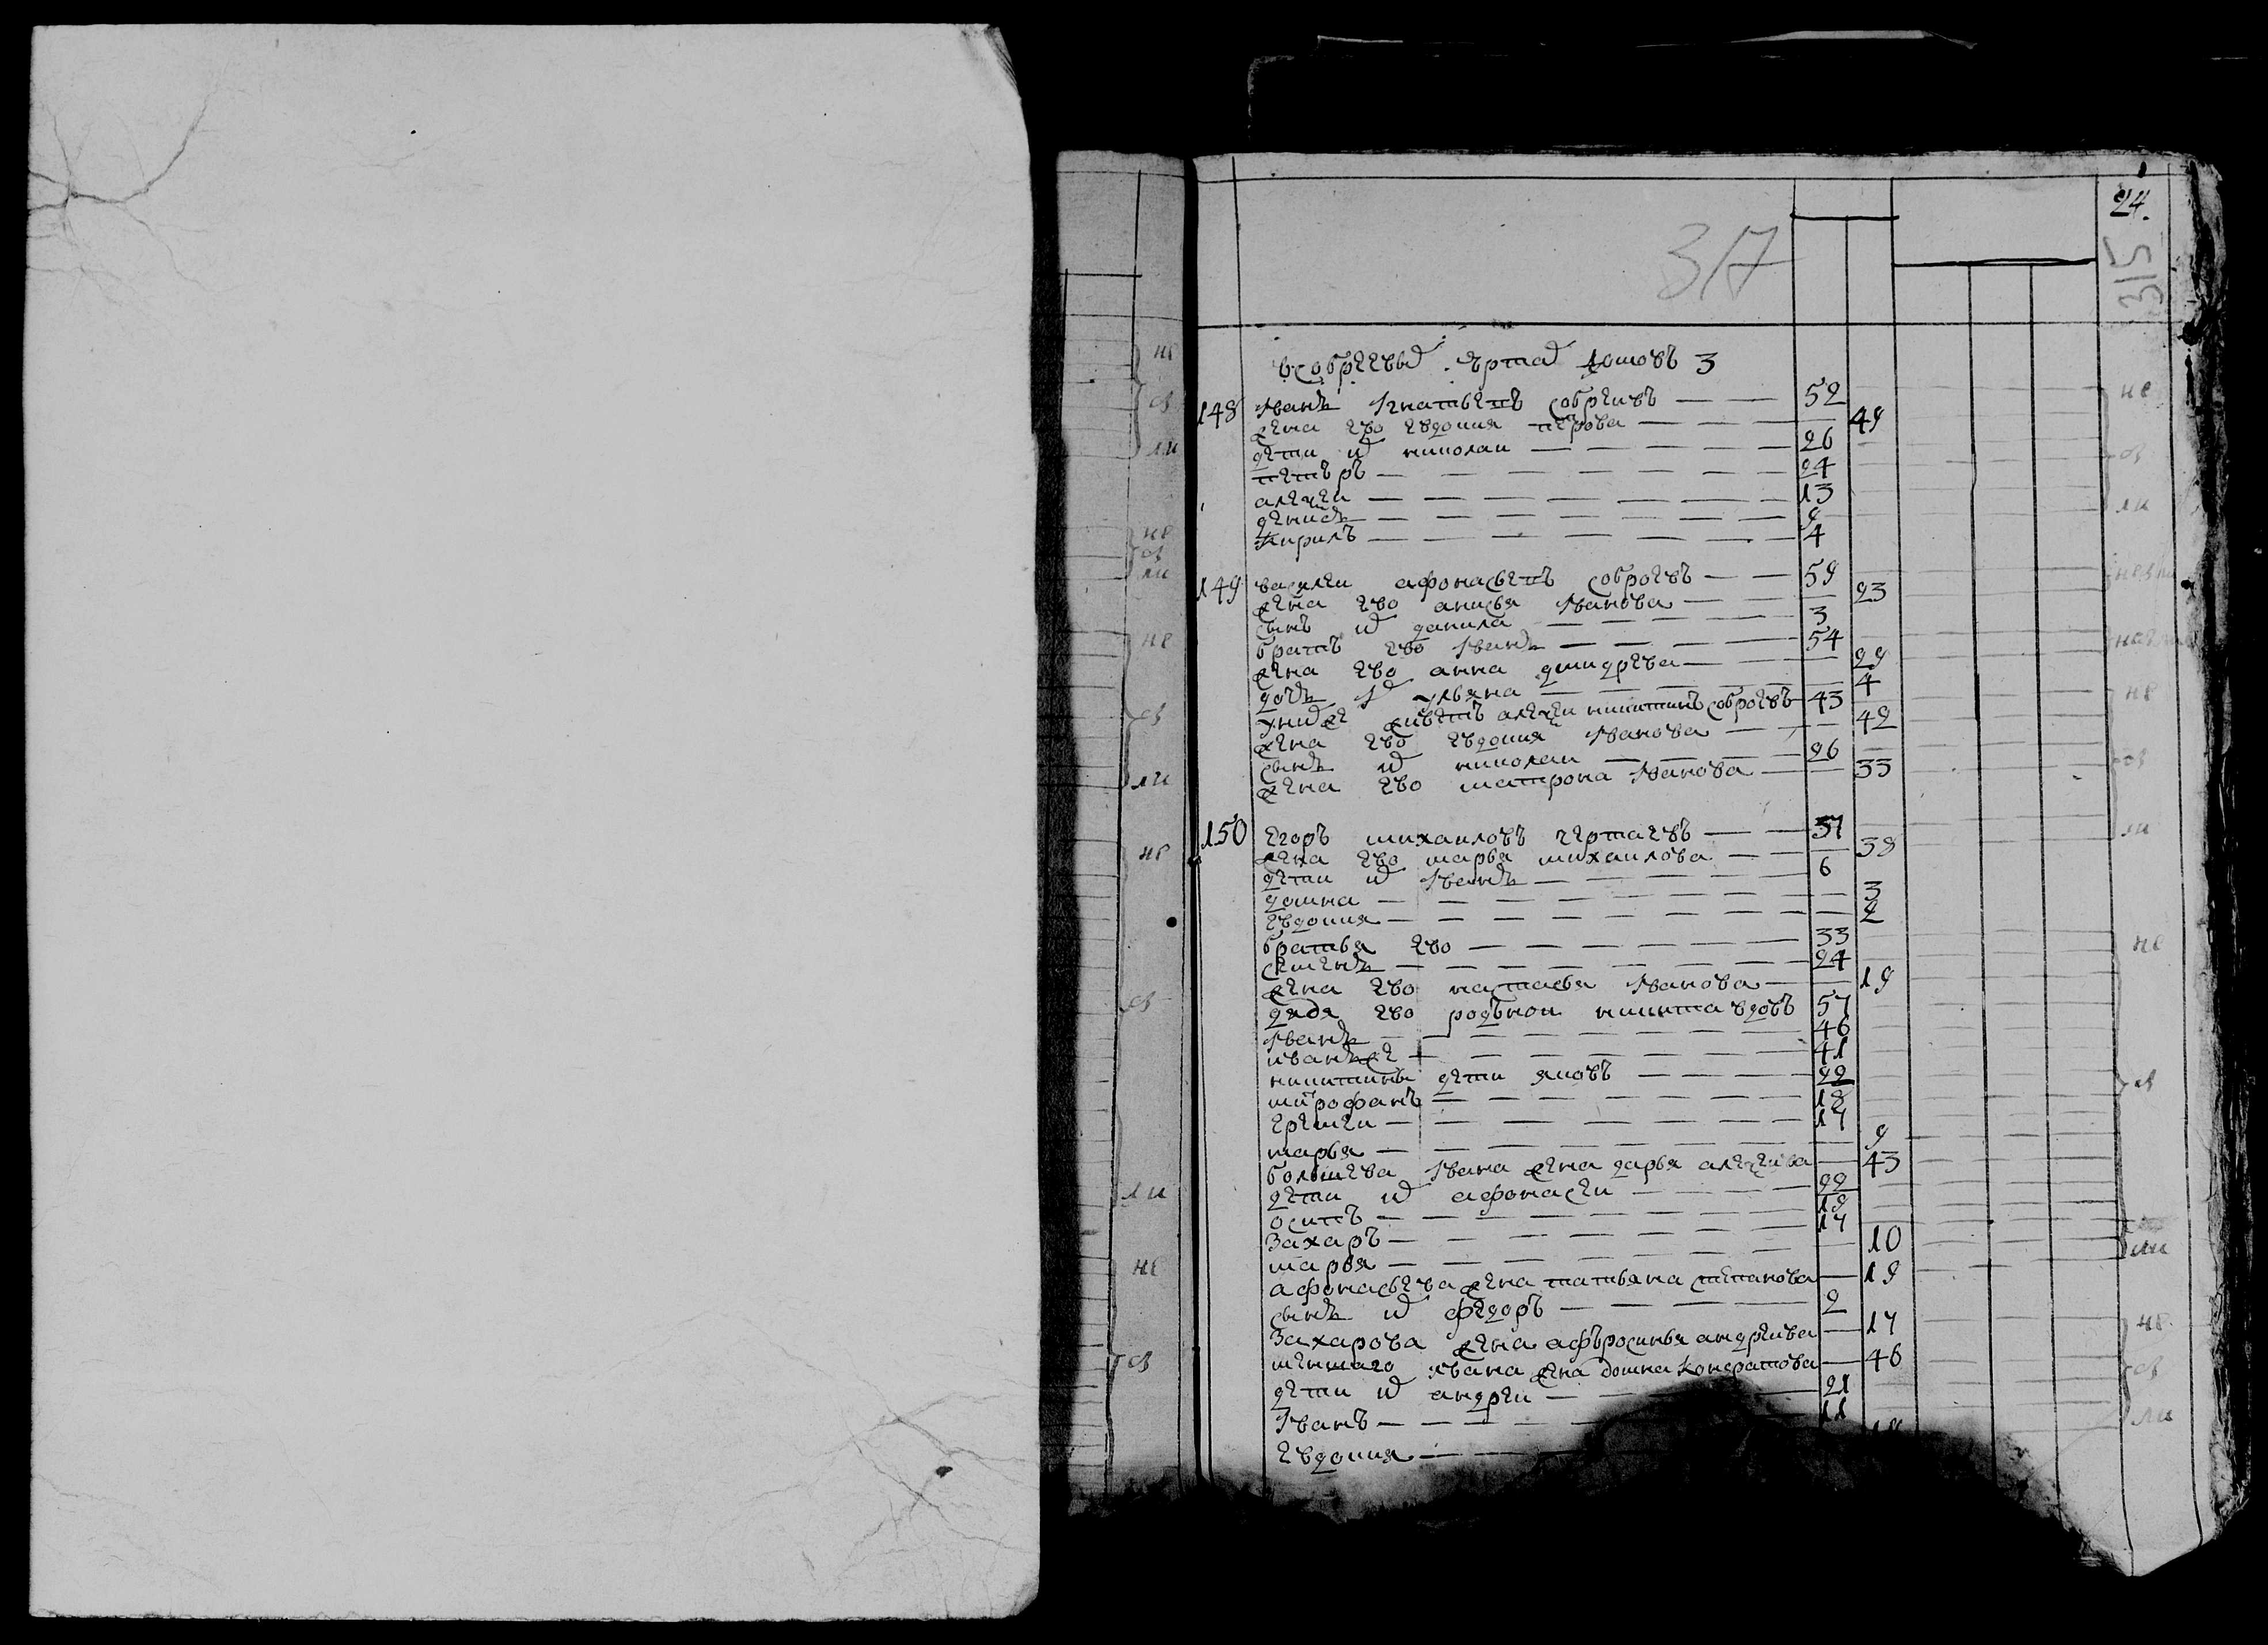 24.
317
315
домовъ 3
148 Иванъ Игнатьевъ Собреевъ 52
жена ево евдокия петрова 49
дети их николаи 26
петъръ 24
алексеи 13
денисъ 9
Кирилъ 4
149 василеи афонасьевъ Соброевъ 59
жена ево анисья Иванова 23
сынъ их данила 3
братъ ево Иванъ 54
жена ево анна дмидрева 29
дочь их ульяна 4
у них же живетъ алексеи никитинъ соброевъ 43
жена ево евдокия Иванова 42
сынъ их николаи 26
жена ево матрона Иванова 33
150 Егоръ михаиловъ чертаевъ 37
жена ево марья михаилова 38
дети их Иванъ 6
домна 3
евдокия 2
братья ево 33
семенъ 24
жена ево настасья Иванова 19
дядя ево родънои никита вдовъ 57
Иванъ 46
иванъ же 41
никитины дети яковъ 22
митрофанъ 18
еремеи 17
марья 9
большева Ивана жена дарья алексеива 43
дети их афонасеи 22
осипъ 19
Захаръ 17
марья 10
афонасьева жена татьяна степанова 19
сынъ их федоръ 2
Захарова жена афъросинья андреива 17
меншаго Ивана жена домна Кондратова 46
дети их андреи 21
Иванъ 11
евдокия
не
св
ли